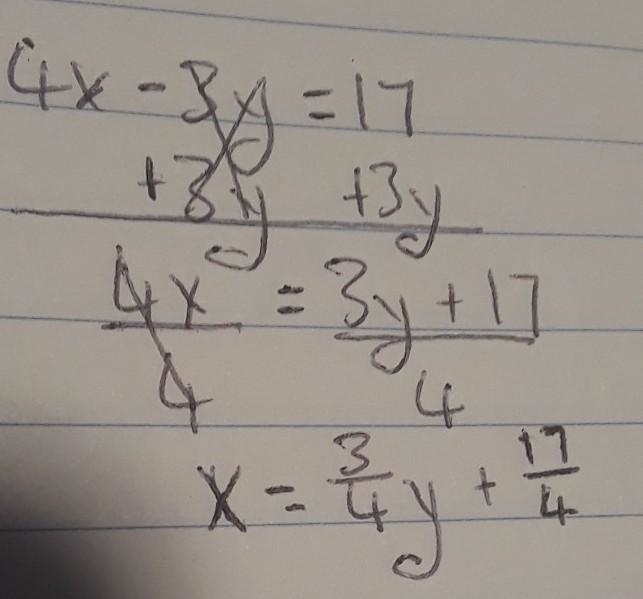 4x - 3y = 17
+3y +3y
4x = 3y + 17
4 4
x = 3/4 y + 17/4